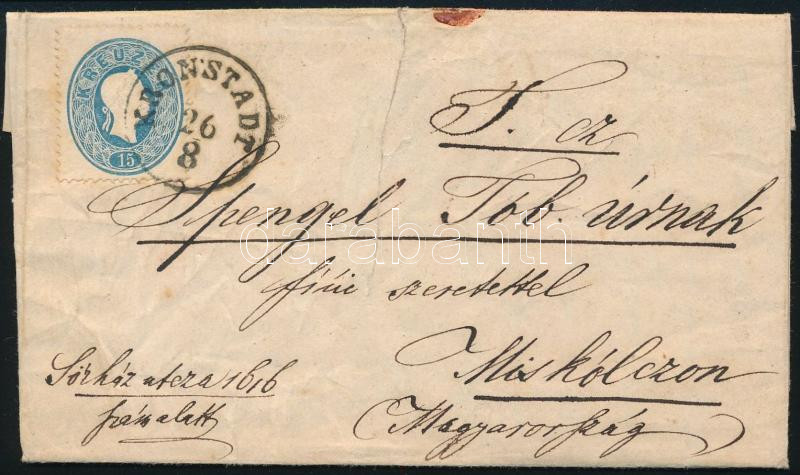 KREUZER
15
KRONSTADT
26
8
T. cz
Spengel Tób. úrnak
fiúi szeretettel
Miskólczon
(Magyarország)
Sörház utcza 1616
szám alatt
darabanth